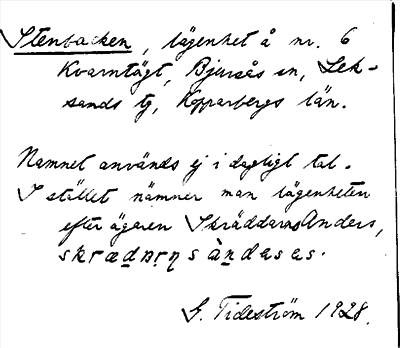 Stenbacken, lägenhet å nr. 6
Kvarntägt, Bjursås sn, Lek-
sands tg, Kopparbergs län.
Namnet används ej i dagligt tal.
I stället nämner man lägenheten
efter ägaren SkräddarnsAnders,
G. Tideström 1928.